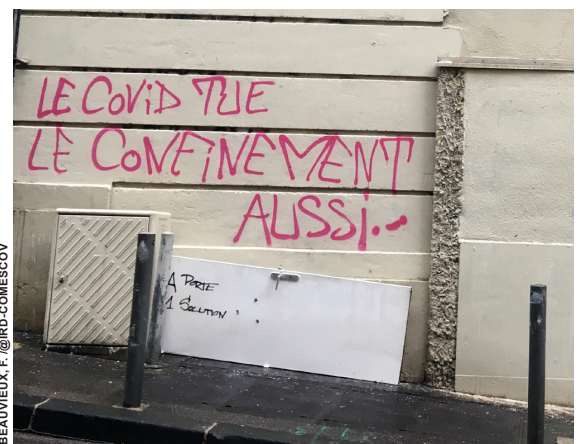 LE COViD TUE
LE CONFiNEMENT
AUSSi...
A PORTE
1 SOLUTION
BEAUVIEUX, F. /@IRD-COMESCOV